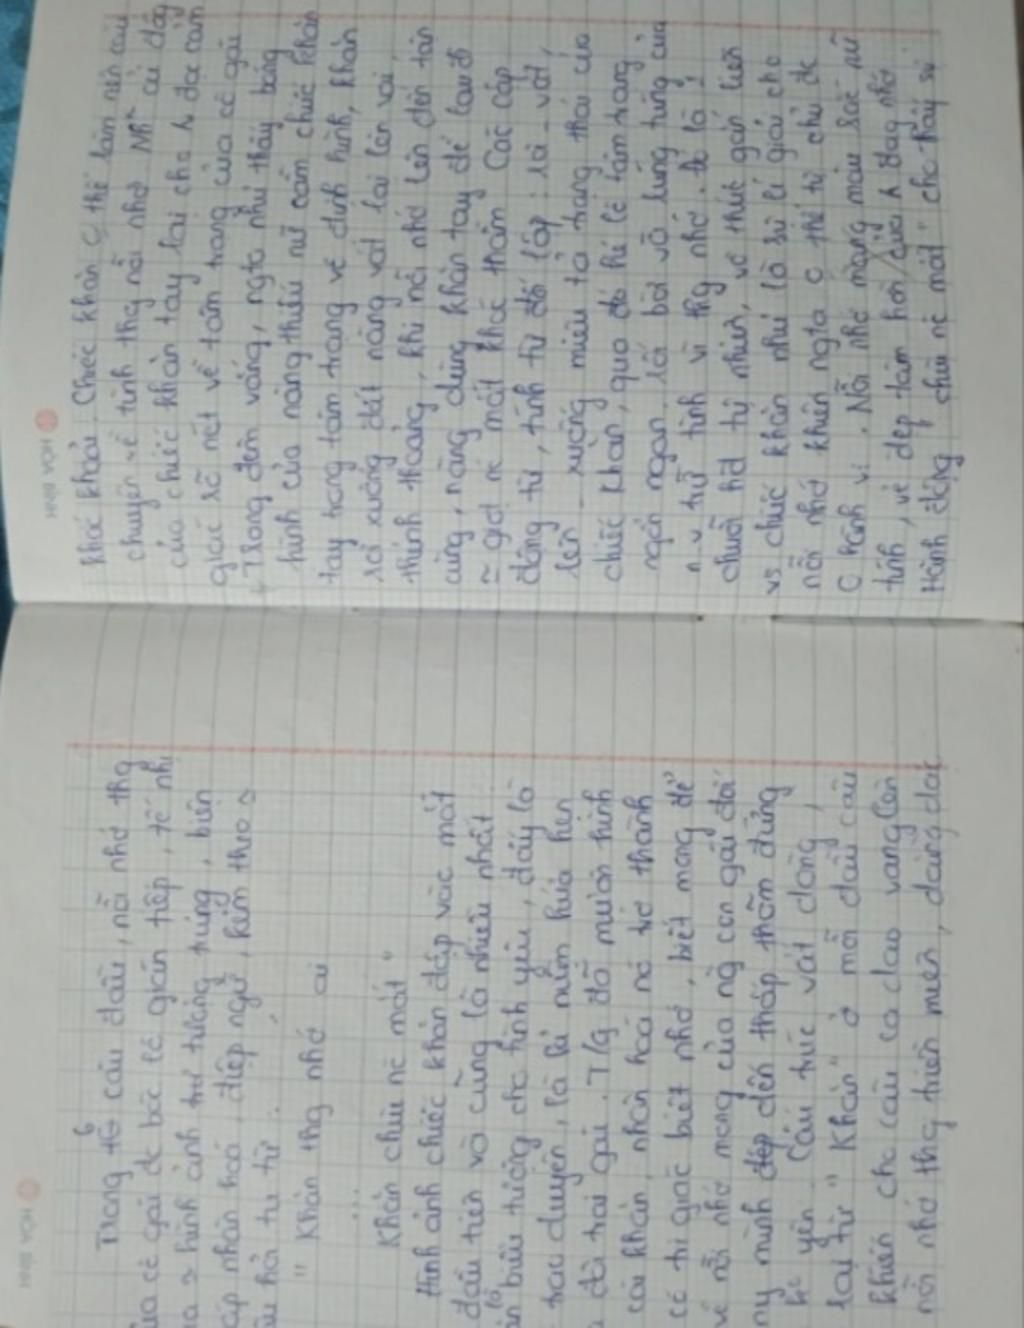 Trong 6 câu đầu, nỗi nhớ thg
của cô gái đc bộc lộ gián tiếp, tế nhị
qua 2 hình ảnh trữ tượng trưng, biện
pháp nhân hoá, điệp ngữ, kèm theo 2
câu hỏi tu từ.
" Khăn thg nhớ ai
...
Khăn chùi nc mắt "
Hình ảnh chiếc khăn đập vào mắt
đầu tiên và cũng là nhiều nhất
biểu tượng cho tình yêu, đây là
trao duyên, là lời niềm hứa hẹn
đôi trai gái. T/g đã mượn hình
cái khăn, nhân hoá nó trở thành
có tri giác biết nhớ, biết mong để
về nỗi nhớ mong của ng con gái đối
ny mình đẹp đến thấp thỏm đứng
k yên. Cấu trúc vắt dòng,
lại từ " Khăn " ở mỗi đầu câu
khiến cho câu ca dao vang lên
nỗi nhớ thg triền miên, dằng dặc
khắc khoải. Chiếc khăn thế làm nên câu
chuyện về tình thg nỗi nhớ NH cử động
của chiếc khăn tay lại cho h đọc cảm
giác rõ nét về tâm trạng của cô gái
Trong đêm vắng, ngta như thấy bóng
hình của nàng thiếu nữ cầm chiếc khăn
tay trong tâm trạng vô định hình, khăn
rơi xuống đất nàng vắt lại lên vai
thỉnh thoảng, khi nỗi nhớ lên đến tận
cùng, nàng dùng khăn tay để lau đi
giọt nc mắt khóc thầm. Các cặp
động từ, tính từ đối lập : rơi - vắt,
lên - xuống miêu tả trạng thái của
chiếc khăn, qua đó hé lộ tâm trạng
ngổn ngang, rối bời vô lúng túng của
n.v trữ tình vì thg nhớ. Đó là 1
chuỗi hđ tự nhiên, vô thức gắn liền
vs chiếc khăn như là sự lí giải cho
nỗi nhớ khiến ngta c thể tự chủ đc
C hành vi. Nỗi nhớ mang màu sắc nữ
tính, vẻ đẹp tâm hồn của h đang nhớ
Hành động " chùi nc mắt " cho thấy sự
HNH VỌH